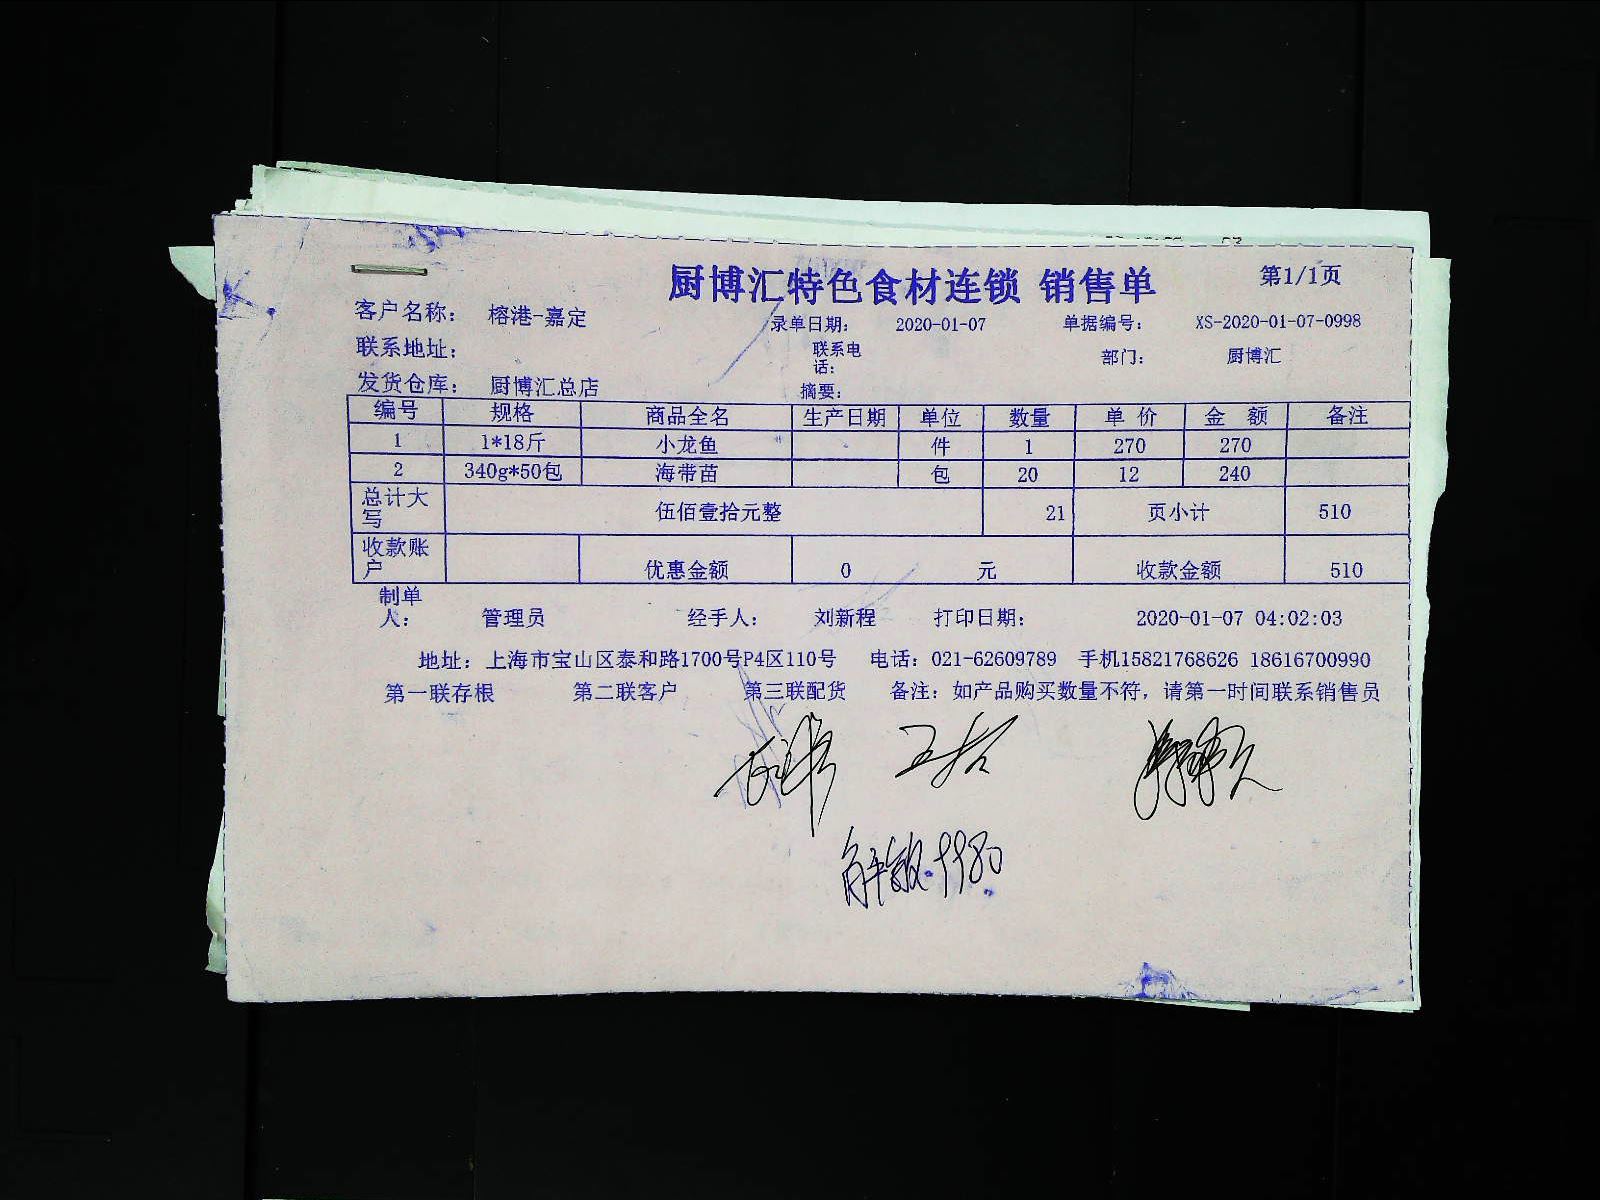 厨博汇特色食材连锁 销售单 第1/1页
客户名称： 榕港-嘉定 录单日期： 2020-01-07 单据编号： XS-2020-01-07-0998
联系地址： 联系电话： 部门： 厨博汇
发货仓库： 厨博汇总店 摘要：
编号 规格 商品全名 生产日期 单位 数量 单 价 金 额 备注
1 1*18斤 小龙鱼 件 1 270 270
2 340g*50包 海带苗 包 20 12 240
总计大写 伍佰壹拾元整 21 页小计 510
收款账户 优惠金额 0 元 收款金额 510
制单人： 管理员 经手人： 刘新程 打印日期： 2020-01-07 04:02:03
地址：上海市宝山区泰和路1700号P4区110号 电话：021-62609789 手机15821768626 18616700990
第一联存根 第二联客户 第三联配货 备注：如产品购买数量不符，请第一时间联系销售员